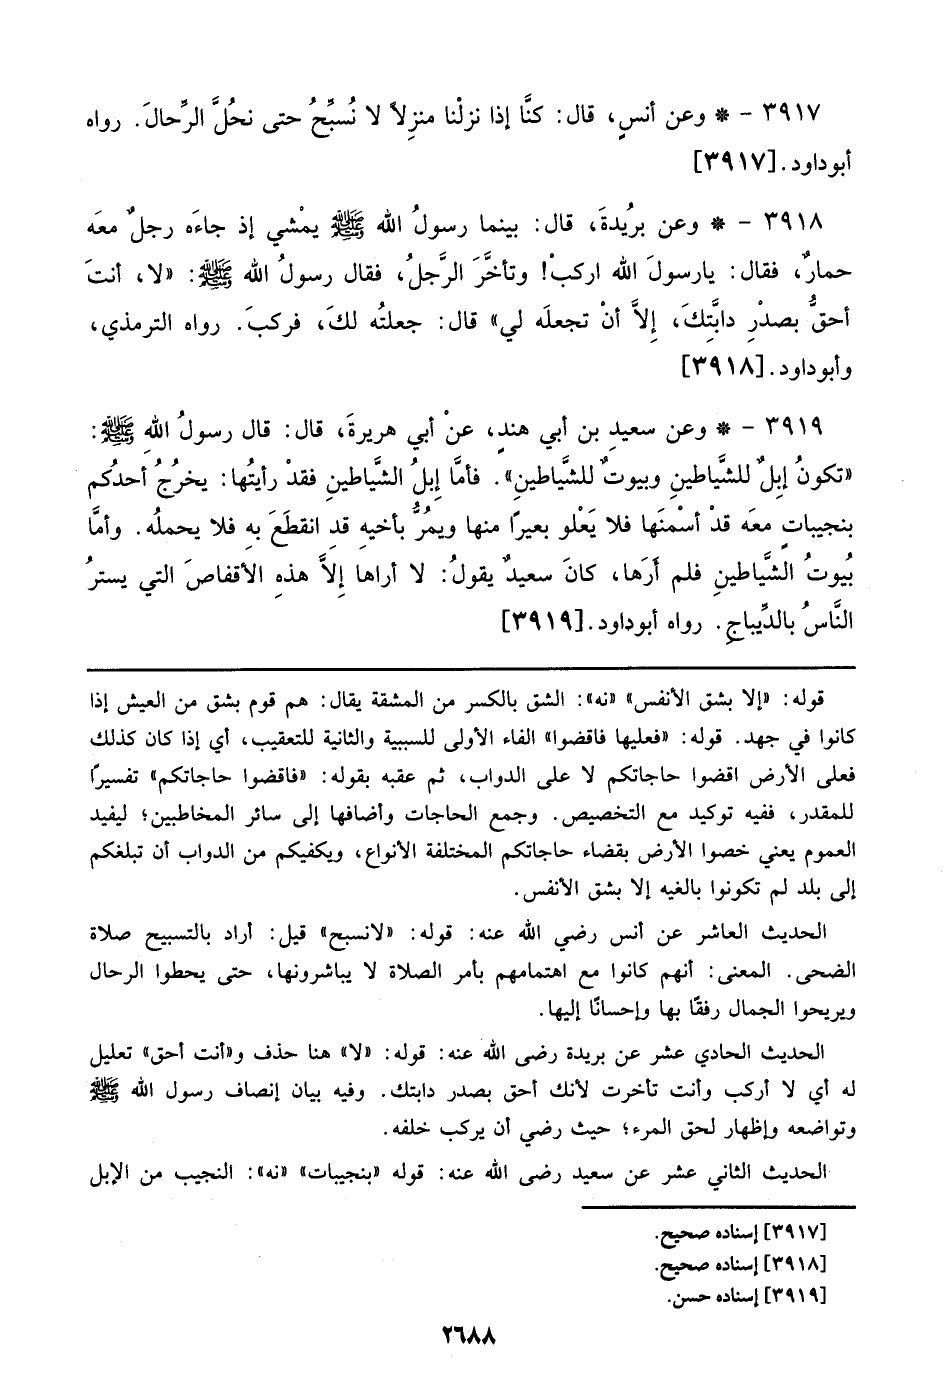 ٣٩١٧ – * وعن أنسٍ، قال: كنَّا إذا نزلْنا منزِلاً لا نُسبِّحُ حتى نحُلَّ الرِّحالَ. رواه
أبوداود.[٣٩١٧]
٣٩١٨ – * وعن بريُدةَ، قال: بينما رسولُ الله ﷺ يمْشي إذ جاءَه رجلٌ معَه
حمارٌ، فقال: يارسولَ الله اركبْ! وتأخَّرَ الرَّجلُ، فقال رسولُ الله ﷺ: «لا، أنتَ
أحقُّ بصدْرِ دابَّتِكَ، إِلاَّ أنْ تجعلَه لي» قال: جعلتُه لكَ، فركبَ. رواه الترمذي،
وأبوداود.[٣٩١٨]
٣٩١٩ – * وعن سعيدِ بن أبي هندٍ، عنْ أبي هريرةَ، قال: قال رسولُ اللهِ ﷺ:
«تكونُ إبلٌ للشَّياطينِ وبيوتٌ للشَّياطينِ». فأمَّا إِبلُ الشَّياطينِ فقدْ رأيتُها: يخرُجُ أحدُكم
بنجيباتٍ معَه قدْ أسْمنَها فلا يَعْلو بعيرًا منها ويمُرُّ بأخيهِ قدِ انقطَعَ بهِ فلا يحملُه. وأمَّا
بُيوتُ الشَّياطينِ فلم أرَها، كانَ سعيدٌ يقولُ: لا أراها إِلاَّ هذهِ الأقفاصَ التي يسترُ
النَّاسُ بالدِّيباجِ. رواه أبوداود.[٣٩١٩]
قوله: «إلا بشق الأنفس» «نه»: الشق بالكسر من المشقة يقال: هم قوم بشق من العيش إذا
كانوا في جهد. قوله: «فعليها فاقضوا» الفاء الأولى للسببية والثانية للتعقيب، أي إذا كان كذلك
فعلى الأرض اقضوا حاجاتكم لا على الدواب، ثم عقبه بقوله: «فاقضوا حاجاتكم» تفسيرًا
للمقدر، ففيه توكيد مع التخصيص. وجمع الحاجات وأضافها إلى سائر المخاطبين؛ ليفيد
العموم يعني خصوا الأرض بقضاء حاجاتكم المختلفة الأنواع، ويكفيكم من الدواب أن تبلغكم
إلى بلد لم تكونوا بالغيه إلا بشق الأنفس.
الحديث العاشر عن أنس رضي الله عنه: قوله: «لانسبح» قيل: أراد بالتسبيح صلاة
الضحى. المعنى: أنهم كانوا مع اهتمامهم بأمر الصلاة لا يباشرونها، حتى يحطوا الرحال
ويريحوا الجمال رفقًا بها وإحسانًا إليها.
الحديث الحادي عشر عن بريدة رضى الله عنه: قوله: «لا» هنا حذف و«أنت أحق» تعليل
له أي لا أركب وأنت تأخرت لأنك أحق بصدر دابتك. وفيه بيان إنصاف رسول الله ﷺ
وتواضعه وإظهار لحق المرء؛ حيث رضي أن يركب خلفه.
الحديث الثاني عشر عن سعيد رضى الله عنه: قوله «بنجيبات» «نه»: النجيب من الإبل
[٣٩١٧] إسناده صحيح.
[٣٩١٨] إسناده صحيح.
[٣٩١٩] إسناده حسن.
٢٦٨٨